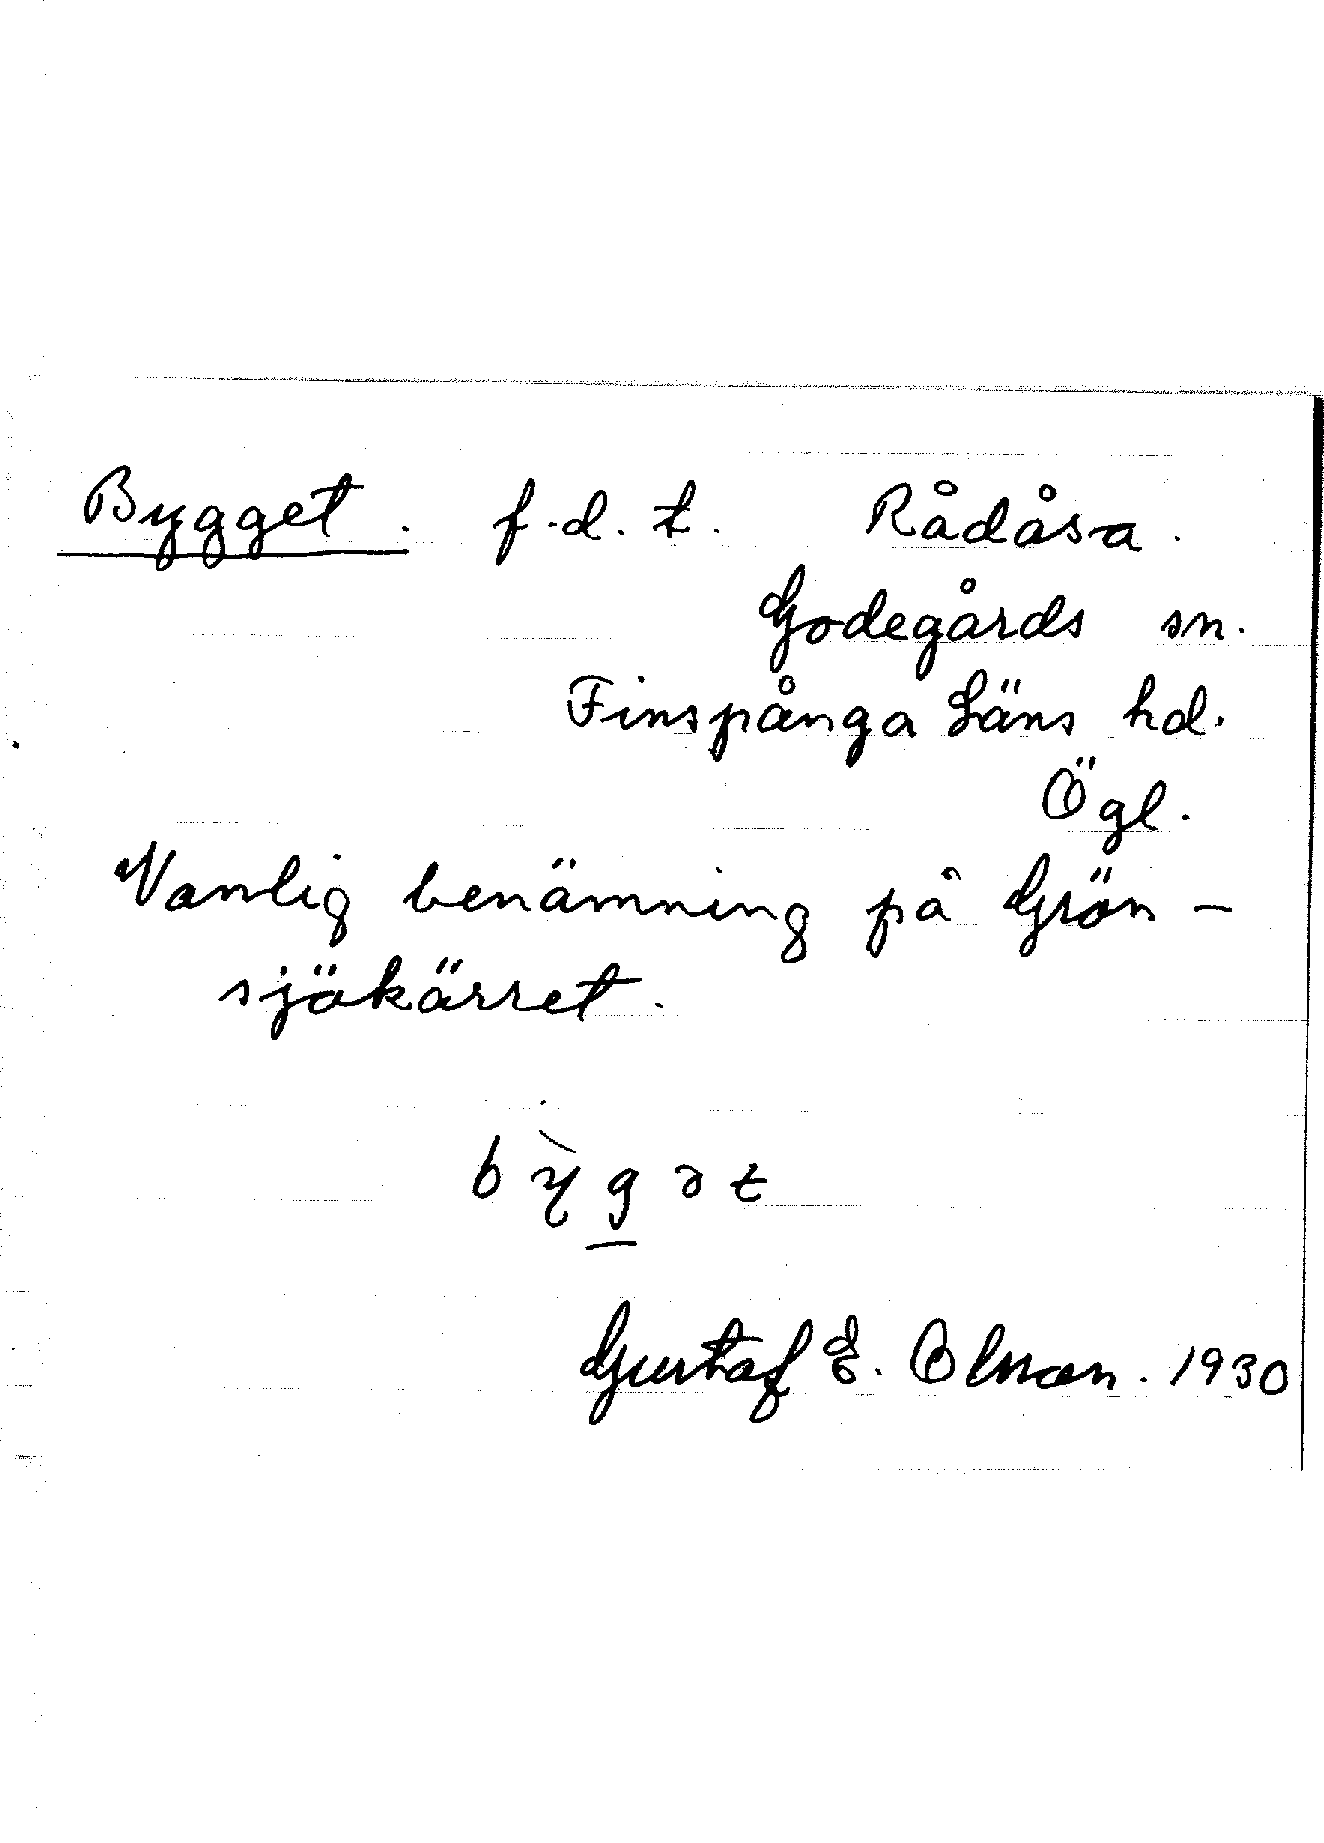 Bygget. f.d.t. Rådåsa.
Godegårds sn.
Finspånga Läns hd.
Ögl.
Vanlig benämning på Grön-
sjökärret.
bỳg̲ət
Gustaf E. Olsson. 1930